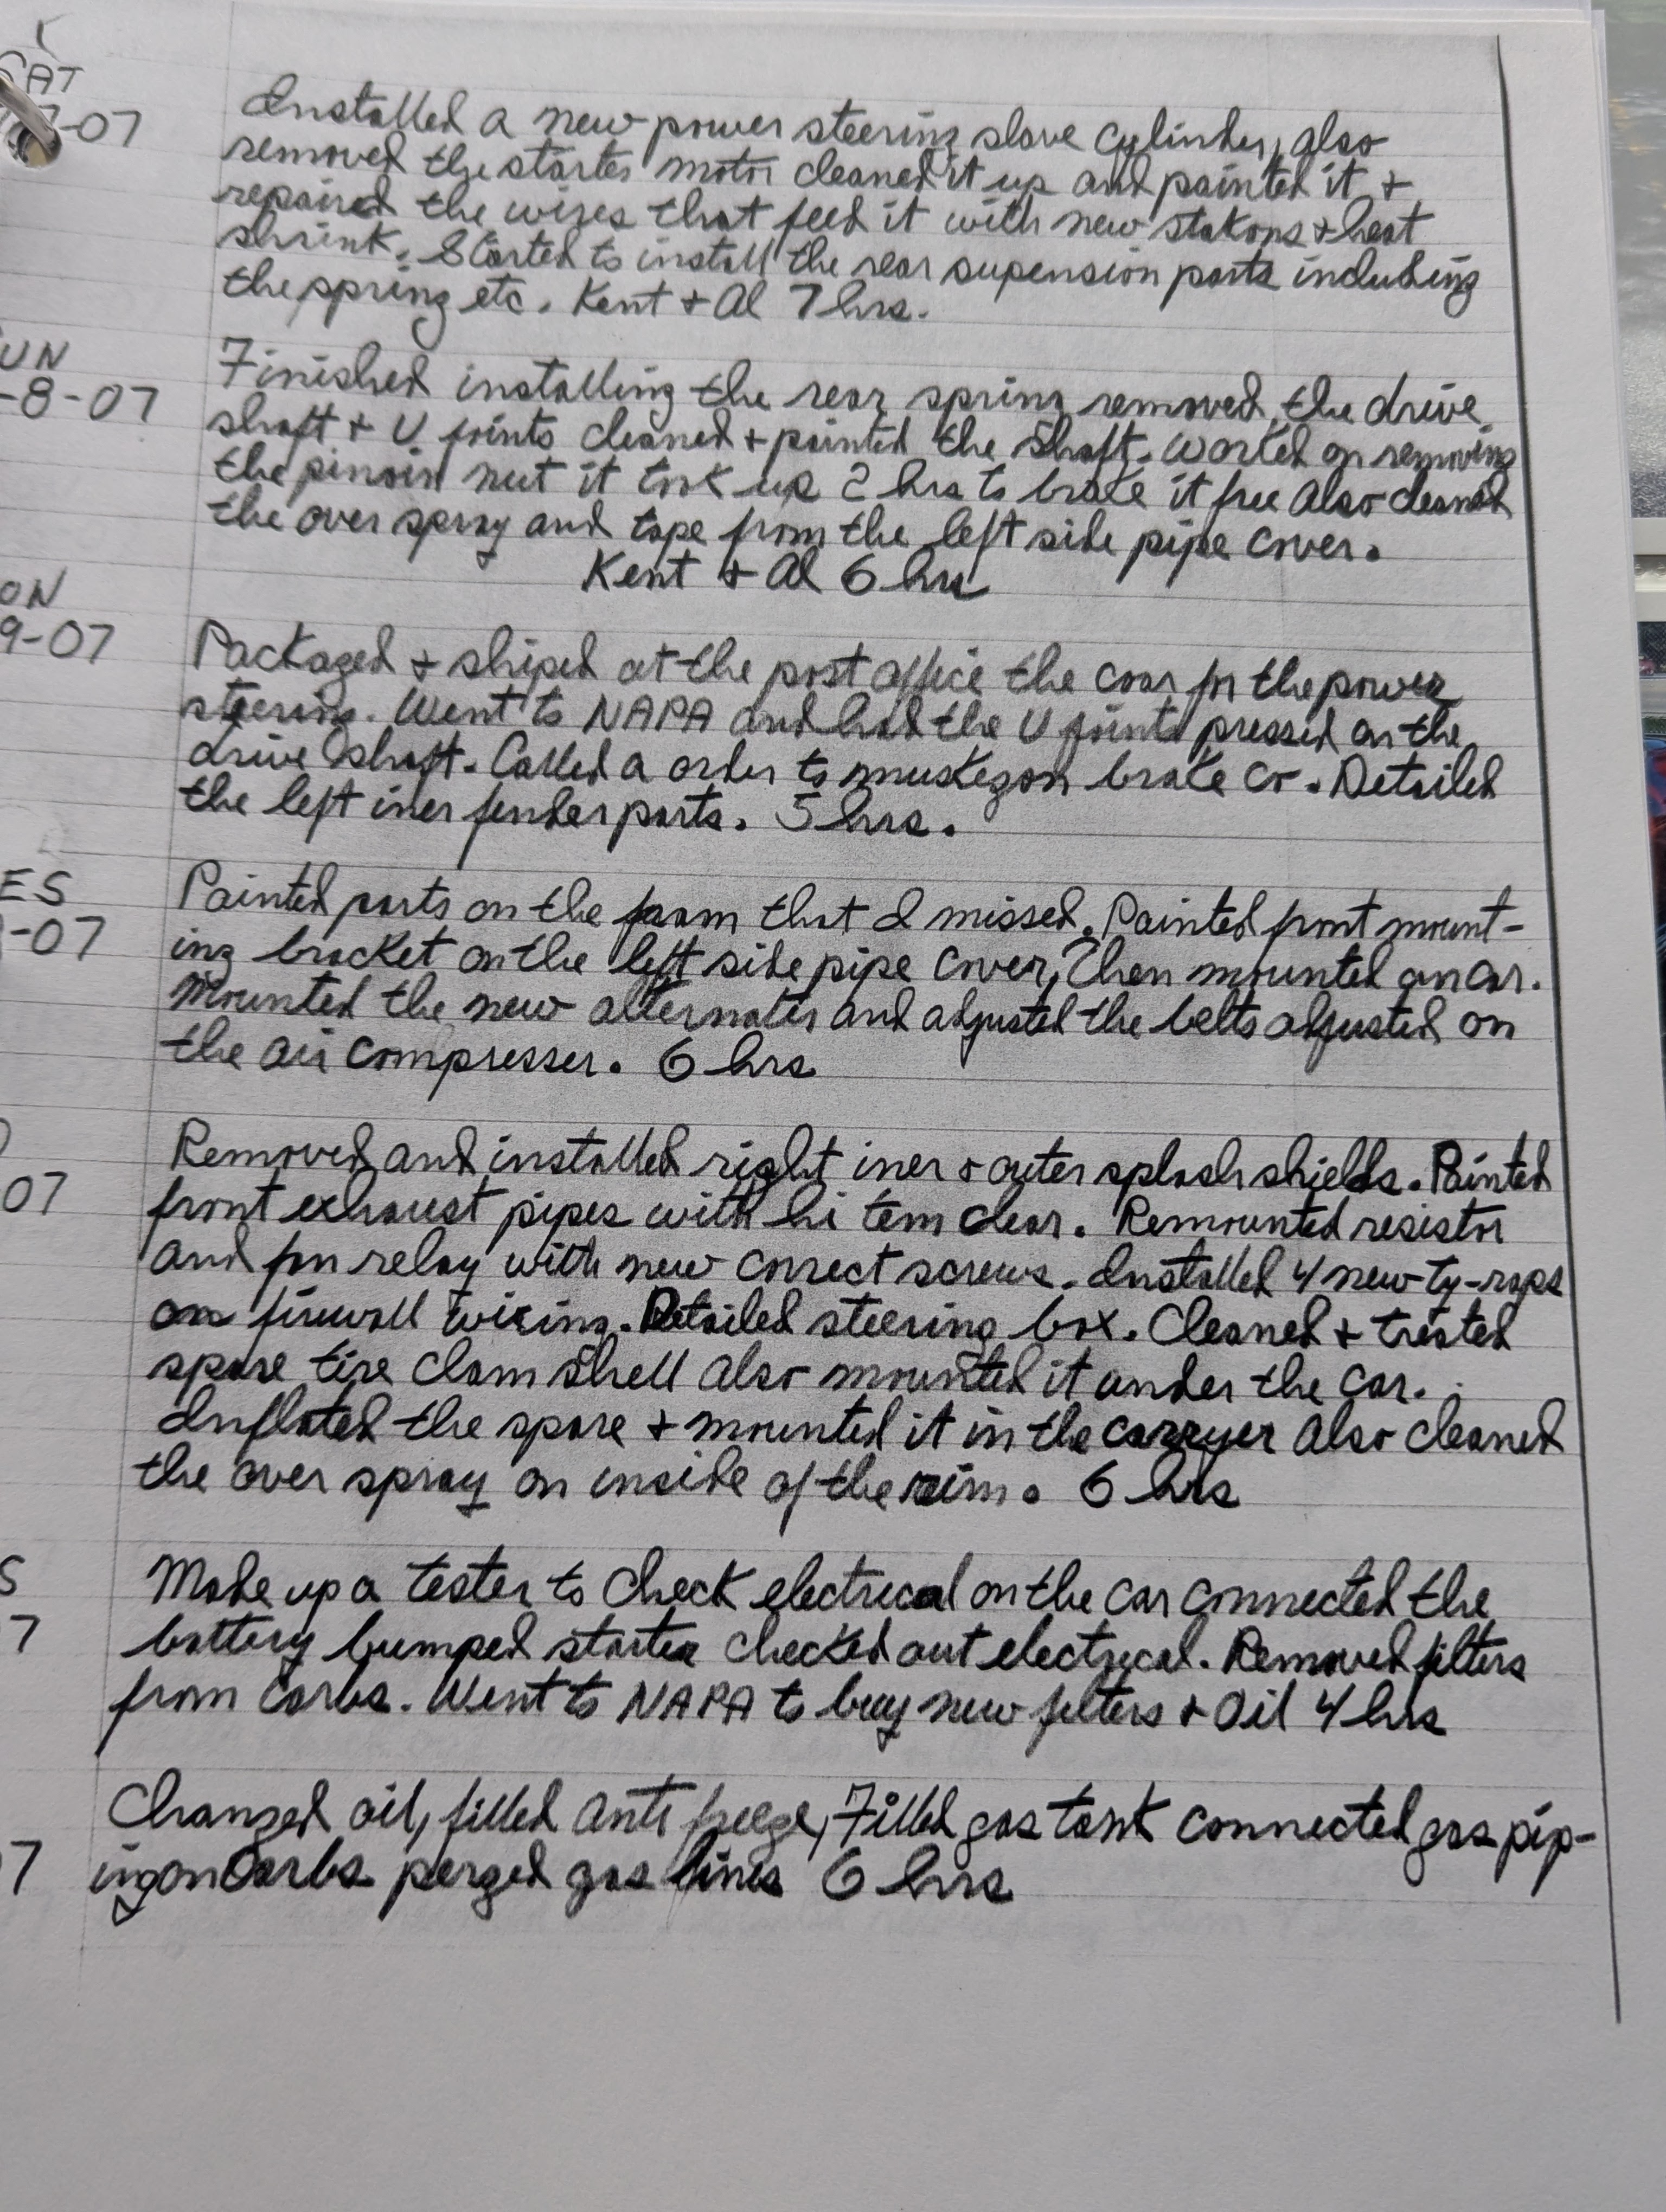 SAT
7-07
Installed a new power steering slave cylinder, also
removed the starter motor cleaned it up and painted it +
repaired the wires that feed it with new stakons + heat
shrink. Started to install the rear supension parts including
the spring etc. Kent + Al 7 hrs.
UN
-8-07
Finished installing the rear spring removed the drive
shaft + U joints cleaned + painted the shaft. Worked on removing
the pinoin nut it took up 2 hrs to brake it free also cleaned
the over spray and tape from the left side pipe cover.
Kent + Al 6 hrs
ON
9-07
Packaged + shiped at the post office the coar for the power
steering. Went to NAPA and had the U joints pressed on the
drive shaft. Called a order to muskegon brake co. Detailed
the left iner fender parts. 5 hrs.
ES
-07
Painted parts on the fram that I missed. Painted front mount-
ing bracket on the left side pipe cover, Then mounted on car.
Mounted the new alternator and adjusted the belts adjusted on
the air compresser. 6 hrs
07
Removed and installed right iner + outer splash shields. Painted
front exhaust pipes with hi tem clear. Remounted resistor
and fan relay with new correct screws. Installed 4 new ty-raps
on firewall wiring. Detailed steering box. Cleaned + treated
spare tire clam shell also mounted it under the car.
Inflated the spare + mounted it in the carryer also cleaned
the over spray on inside of the rim. 6 hrs
S
7
Made up a tester to check electrical on the car connected the
battery bumped starter checked out electrical. Removed filters
from carbs. Went to NAPA to buy new filters + oil 4 hrs
7
Changed oil, filled anti freege, Filled gas tank connected gas pip-
ing on carbs perged gas lines 6 hrs